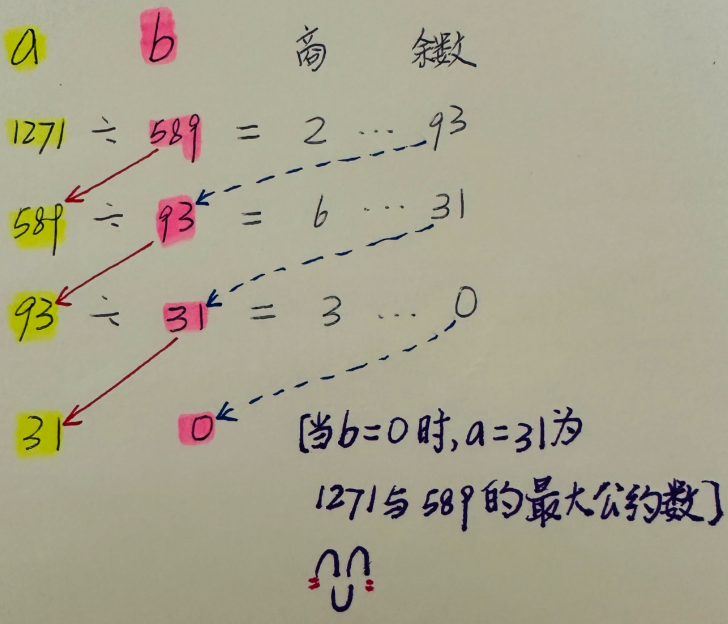 a b 商 余数
1271 ÷ 589 = 2 … 93
589 ÷ 93 = 6 … 31
93 ÷ 31 = 3 … 0
31 0 [当b=0时,a=31为
1271与589的最大公约数]